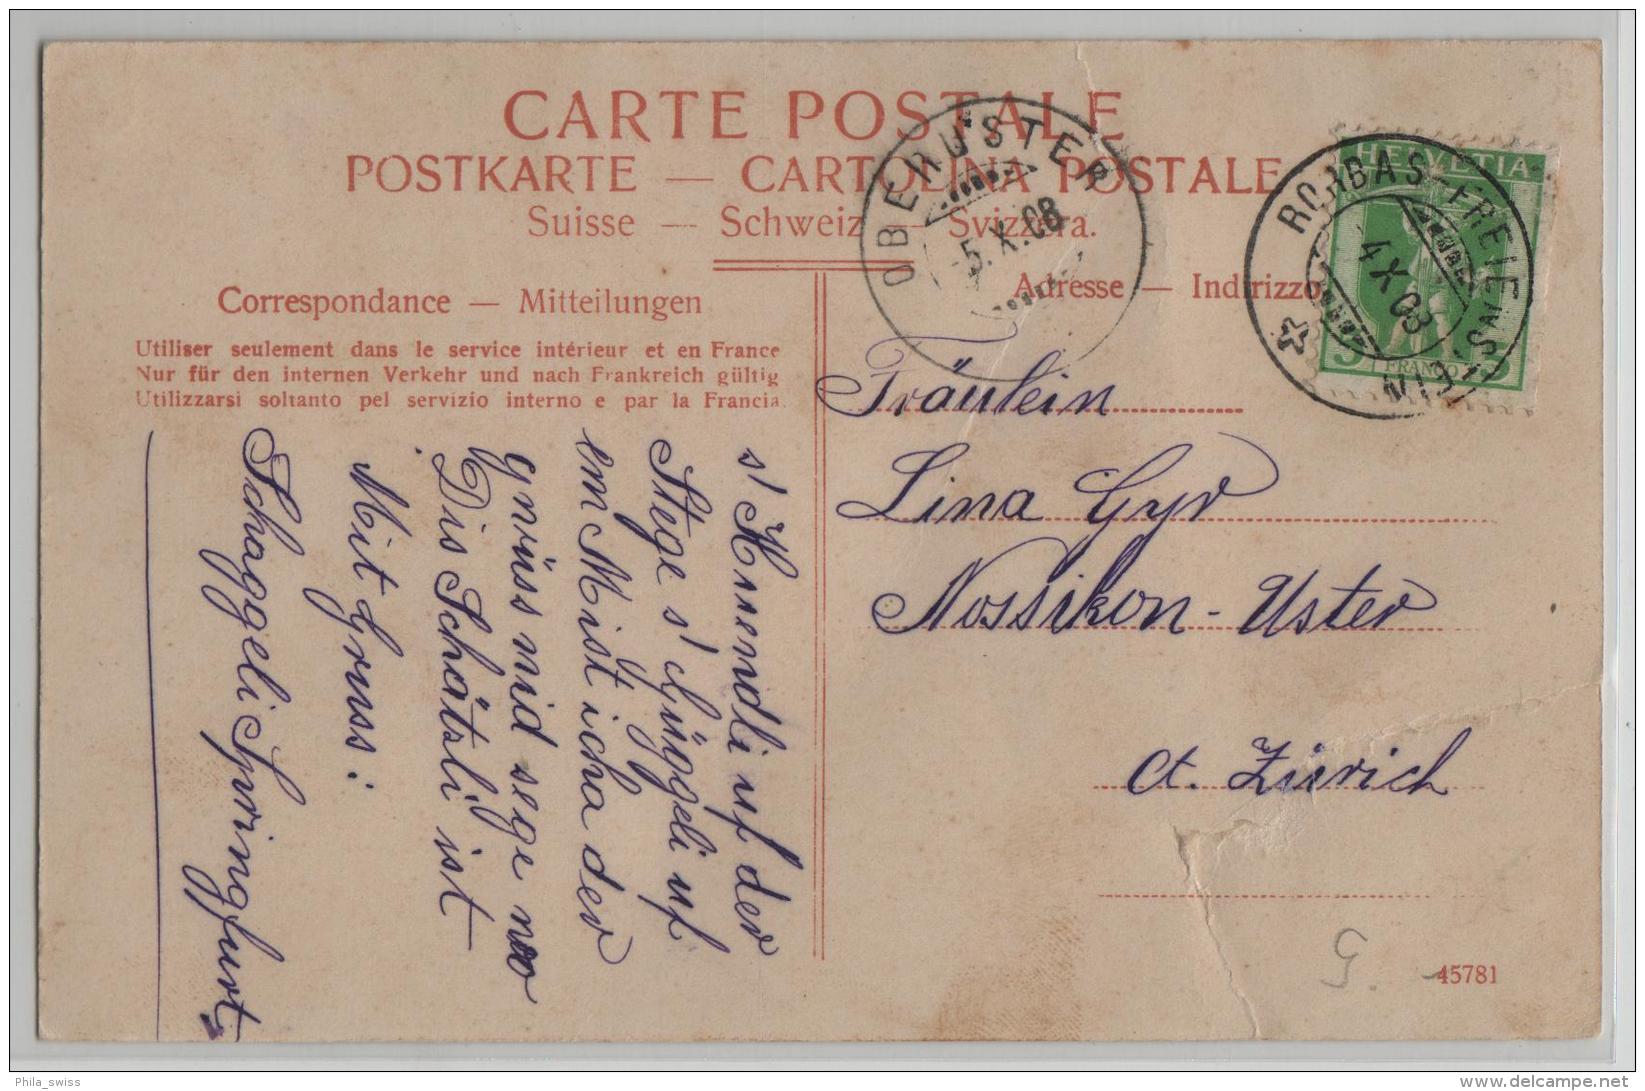 CARTE POSTALE
POSTKARTE — CARTOLINA POSTALE
Suisse — Schweiz — Svizzera.
Correspondance — Mitteilungen
Adresse — Indirizzo
Utiliser seulement dans le service intérieur et en France
Nur für den internen Verkehr und nach Frankreich gültig
Utilizzarsi soltanto pel servizio interno e par la Francia.
OBERUSTER
-5.X.08
HELVETIA
5 FRANCO 5
RORBAS-FREIENSTEIN
4 X 08
Fräulein
Lina Gyr
Nossikon-Uster
Ct. Zürich
s' Huendli uf der
Stege s' Güggeli uf
em Mist icha der
gnüs nid sege wo
Dis Schätzli ist
Mit Gruss:
Schaggeli Springfurt
G.
45781
Phila_swiss
www.delcampe.net